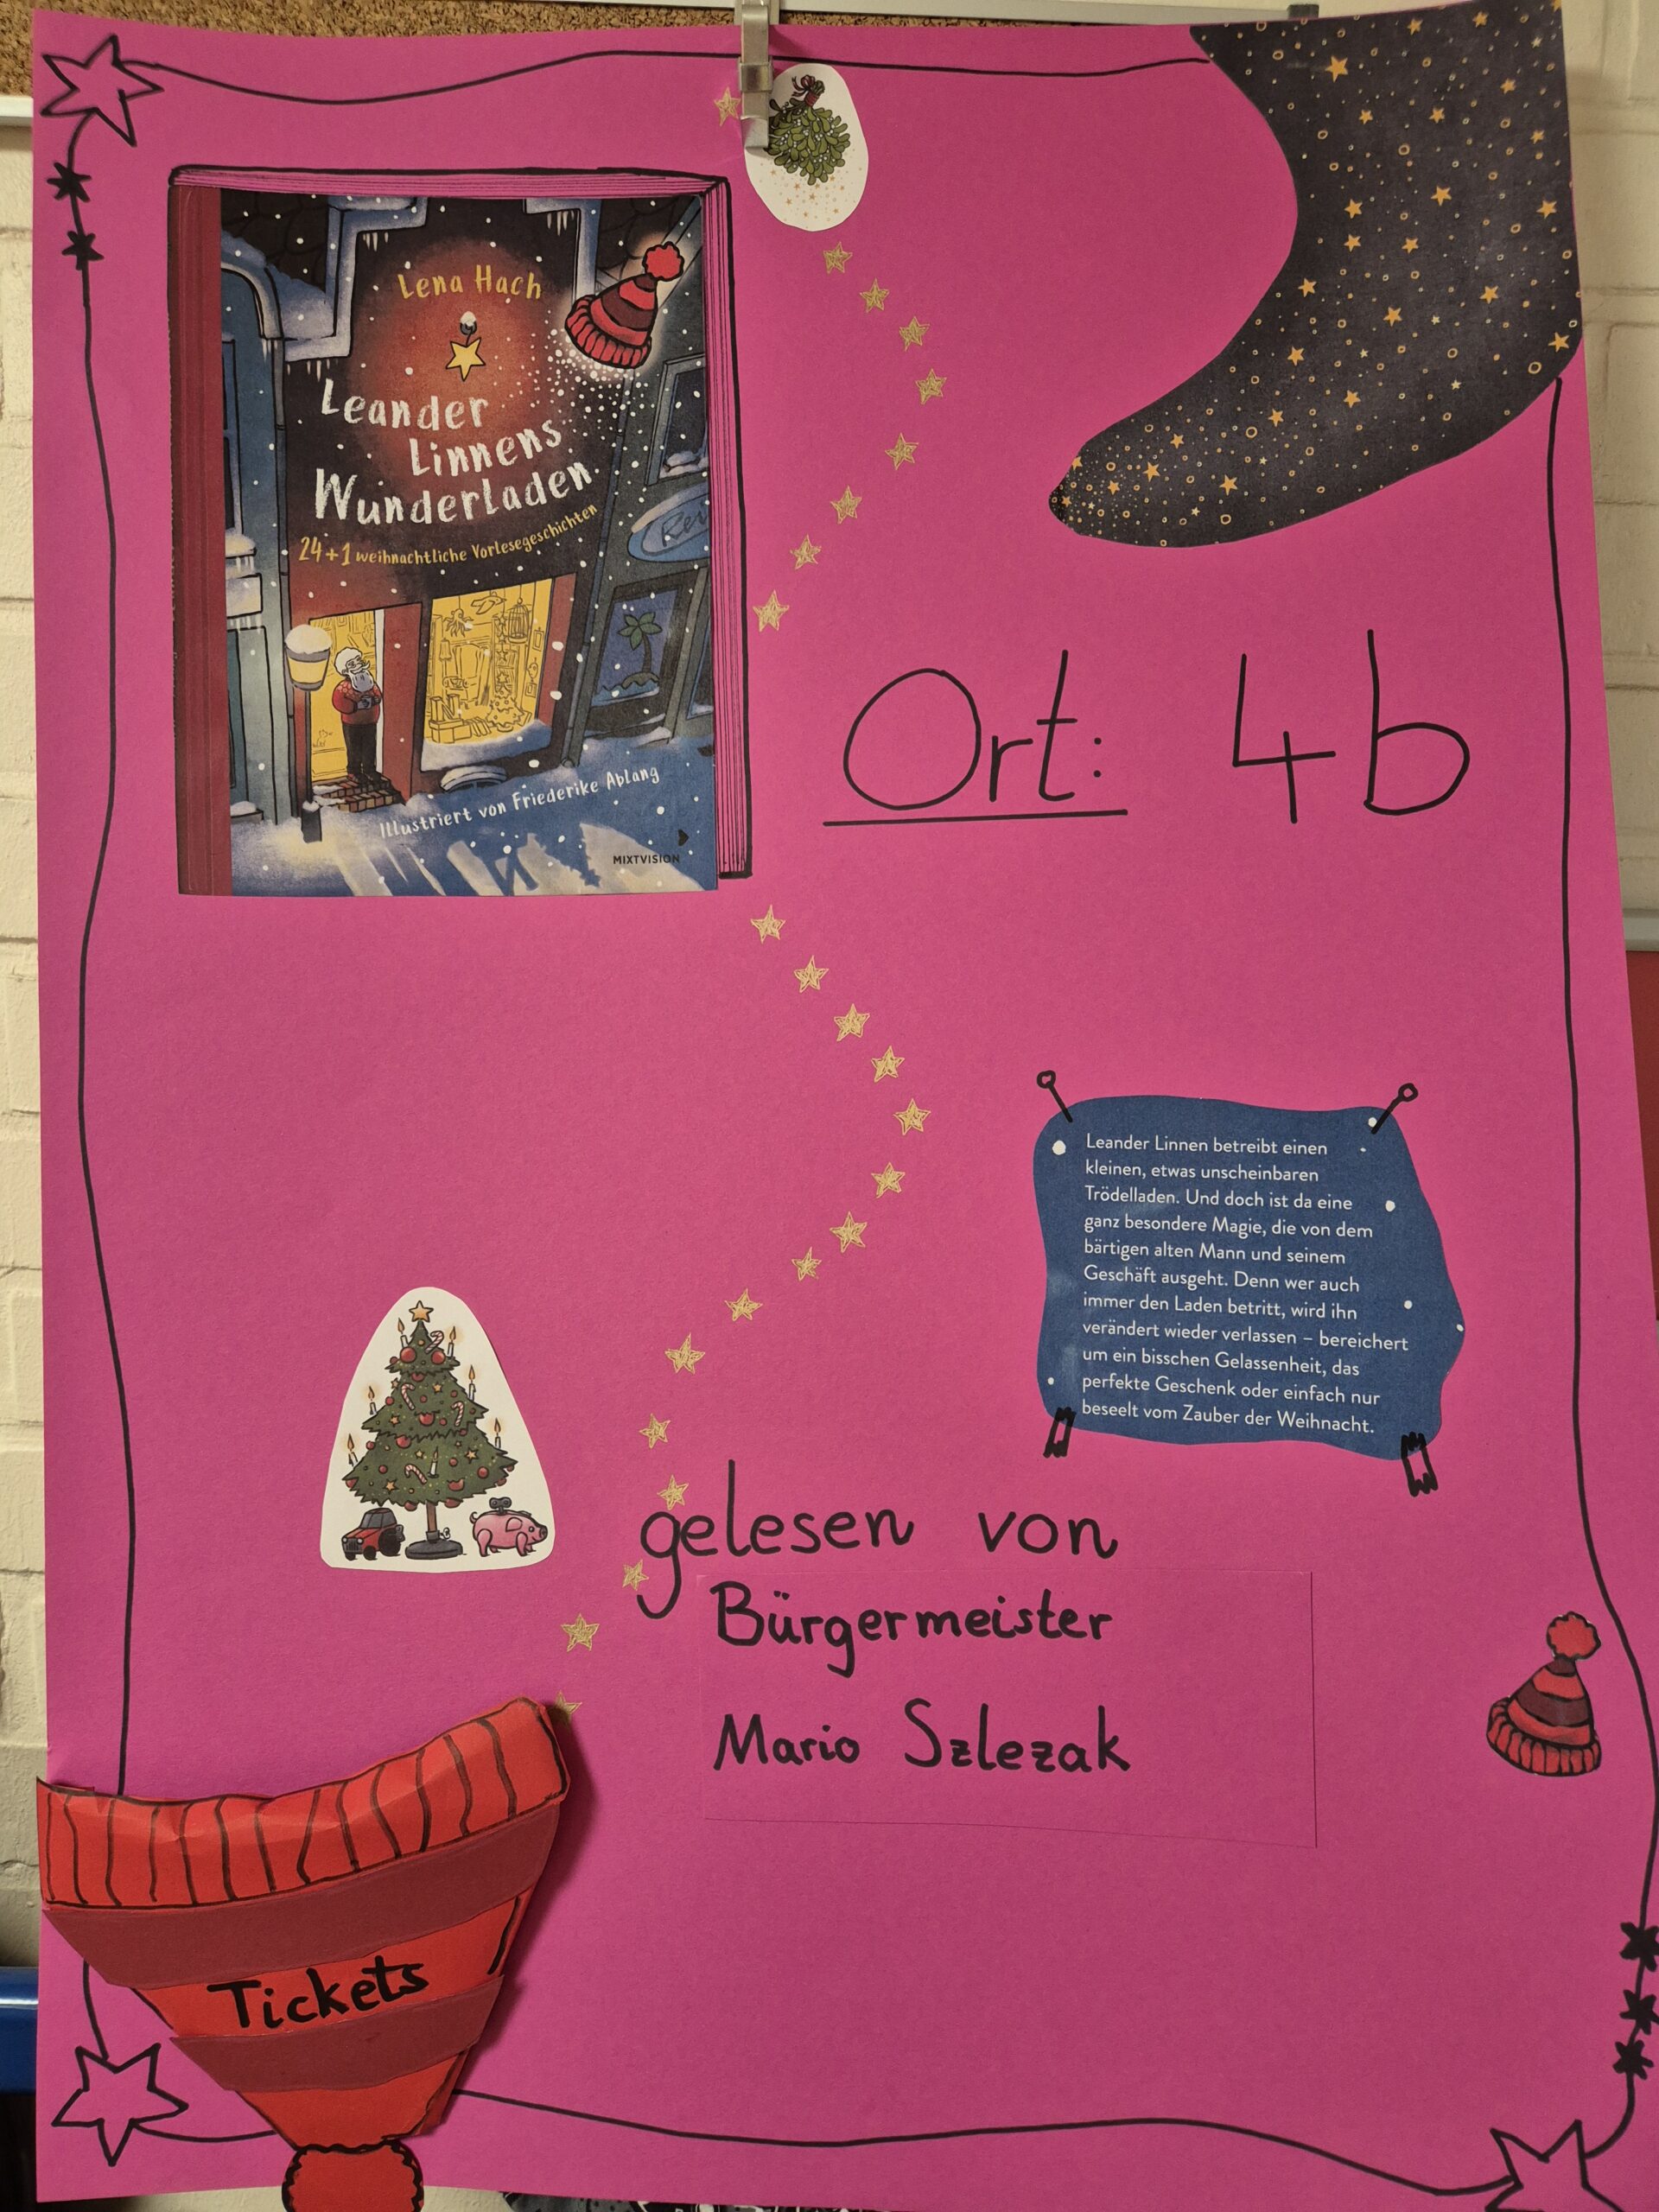 Lena Hach
Leander
Linnens
Wunderladen
24+1 weihnachtliche Vorlesegeschichten
Illustriert von Friederike Ablang
MIXTVISION
Ort: 4b
Leander Linnen betreibt einen
kleinen, etwas unscheinbaren
Trödelladen. Und doch ist da eine
ganz besondere Magie, die von dem
bärtigen alten Mann und seinem
Geschäft ausgeht. Denn wer auch
immer den Laden betritt, wird ihn
verändert wieder verlassen – bereichert
um ein bisschen Gelassenheit, das
perfekte Geschenk oder einfach nur
beseelt vom Zauber der Weihnacht.
gelesen von
Bürgermeister
Mario Szlezak
Tickets